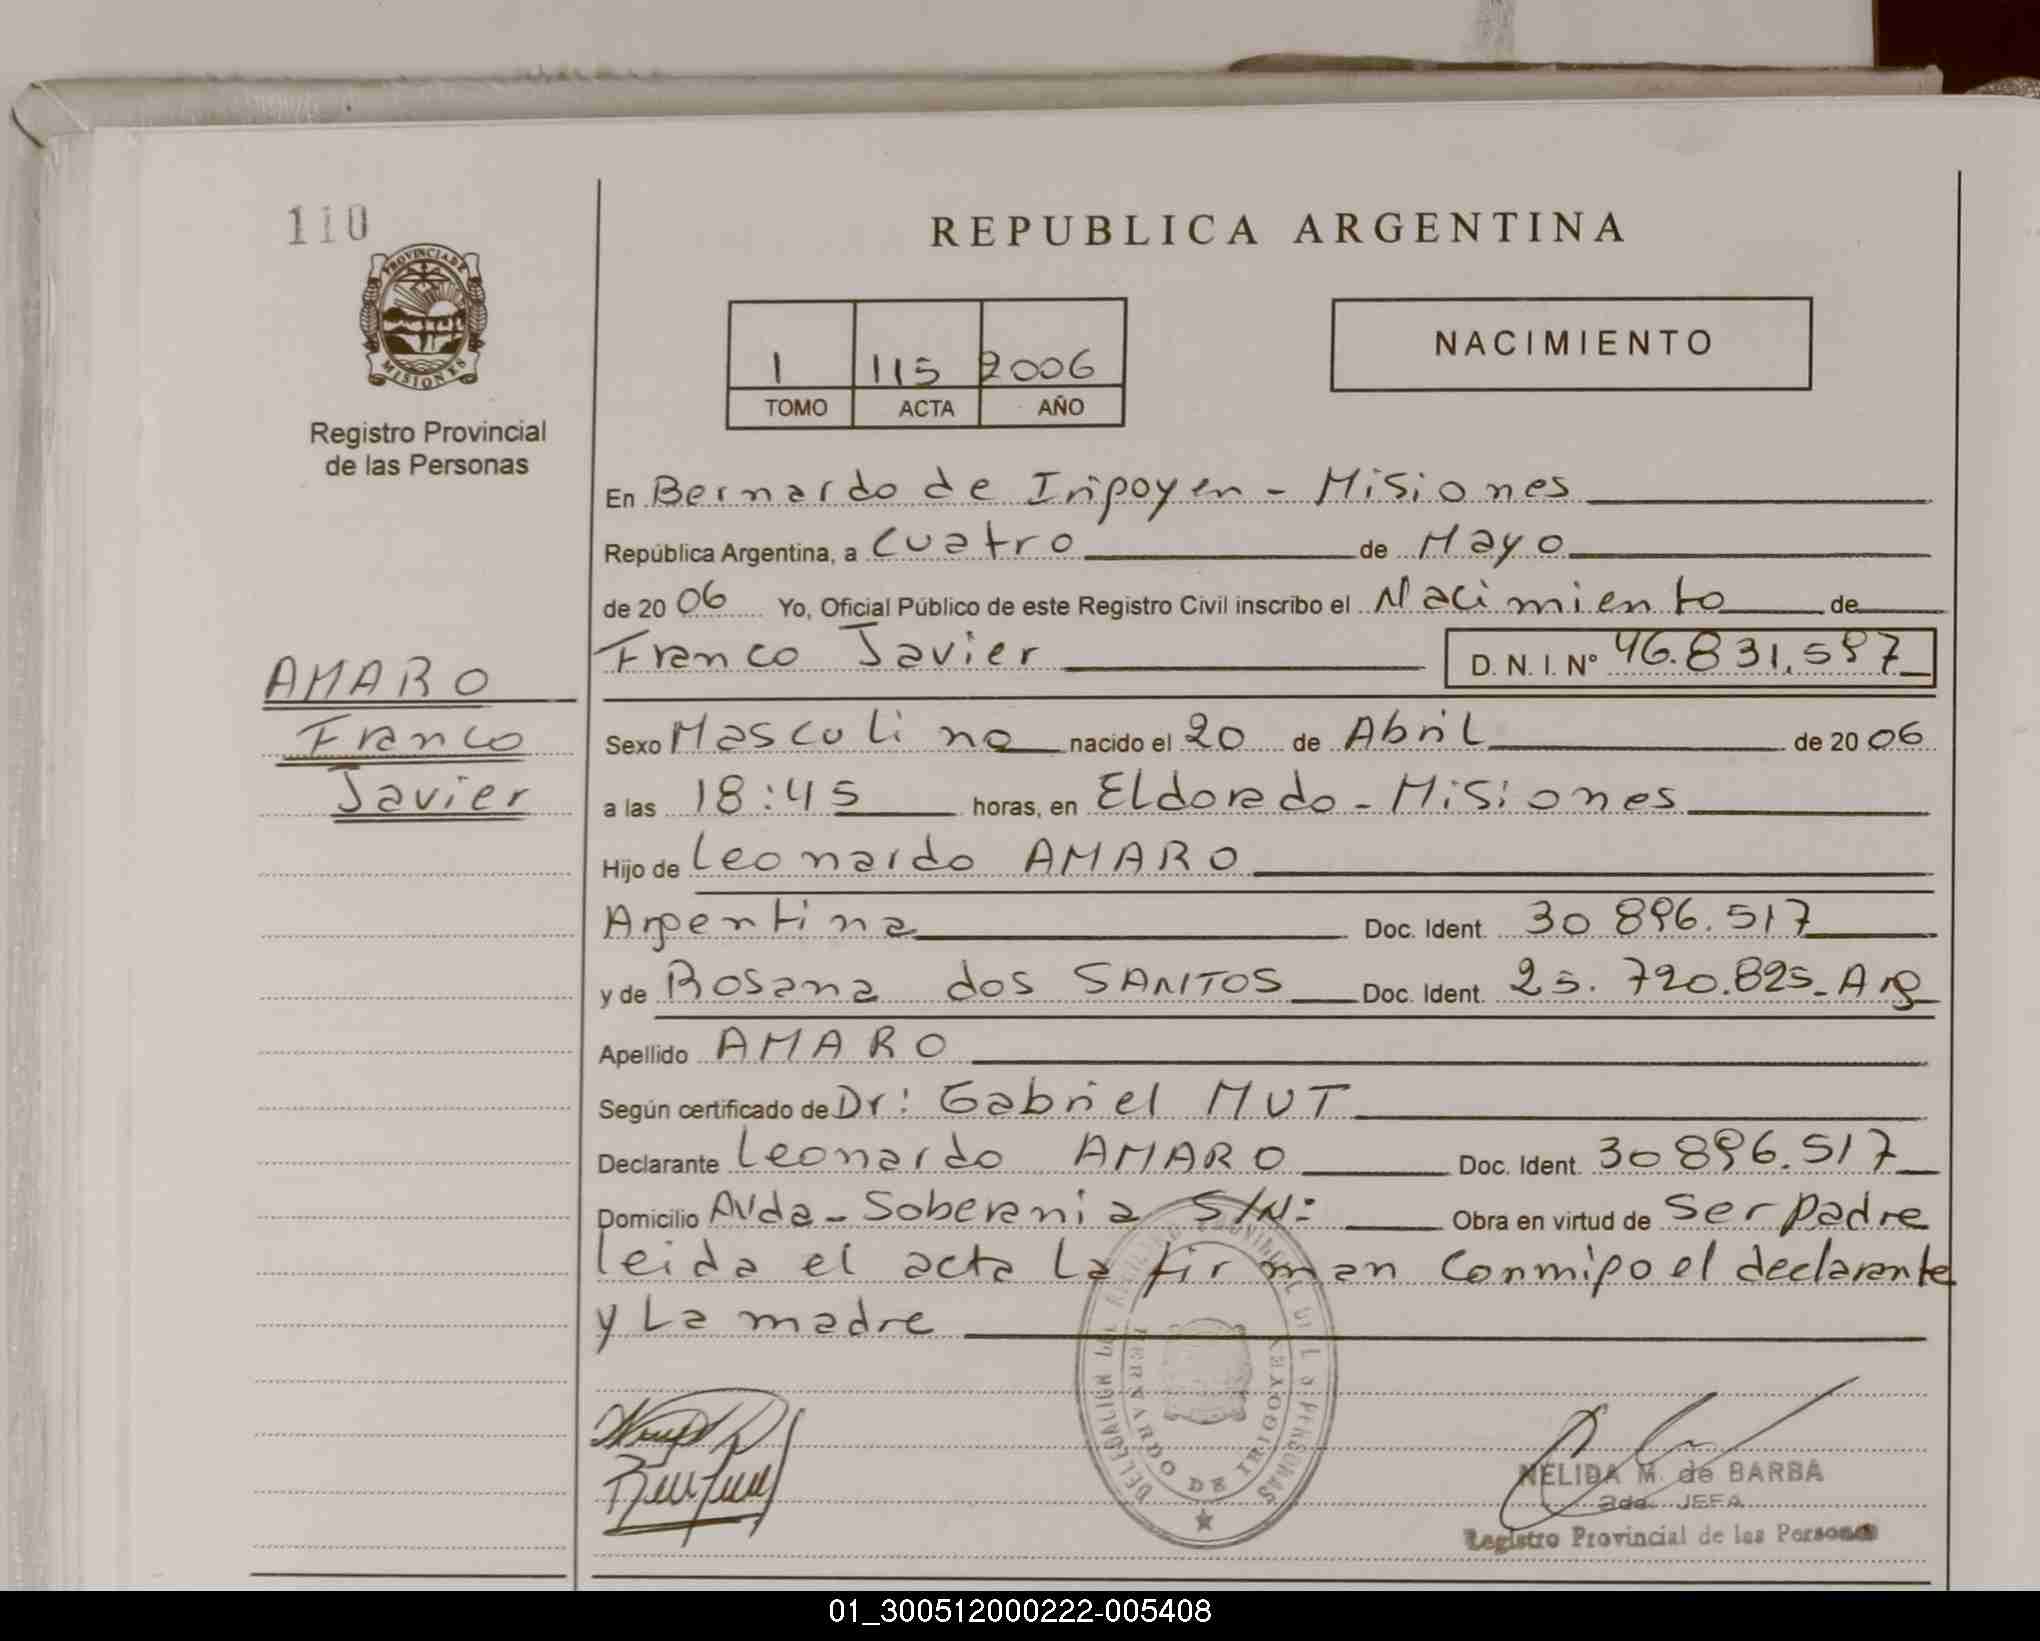 110
REPUBLICA ARGENTINA
PROVINCIA DE
MISIONES
Registro Provincial
de las Personas
1 115 2006
TOMO ACTA AÑO
NACIMIENTO
En Bernardo de Irigoyen - Misiones
República Argentina, a Cuatro de Mayo
de 2006 Yo, Oficial Público de este Registro Civil inscribo el Nacimiento de
Franco Javier D. N. I. Nº 46.831.597
AMARO
Franco
Javier
Sexo Masculino nacido el 20 de Abril de 2006
a las 18:45 horas, en Eldorado - Misiones
Hijo de Leonardo AMARO
Argentina Doc. Ident. 30 896.517
y de Rosana dos SANTOS Doc. Ident. 25.720.825- Arg
Apellido AMARO
Según certificado de Dr: Gabriel MUT
Declarante Leonardo AMARO Doc. Ident. 30 896.517
Domicilio Avda - Soberania S/N: Obra en virtud de ser padre
leida el acta la firman conmigo el declarante
y la madre
DELEGACION DEL REGISTRO PROVINCIAL DE LAS PERSONAS
BERNARDO DE IRIGOYEN
NELIDA M. de BARBA
2da. JEFA
Registro Provincial de las Personas
01_300512000222-005408